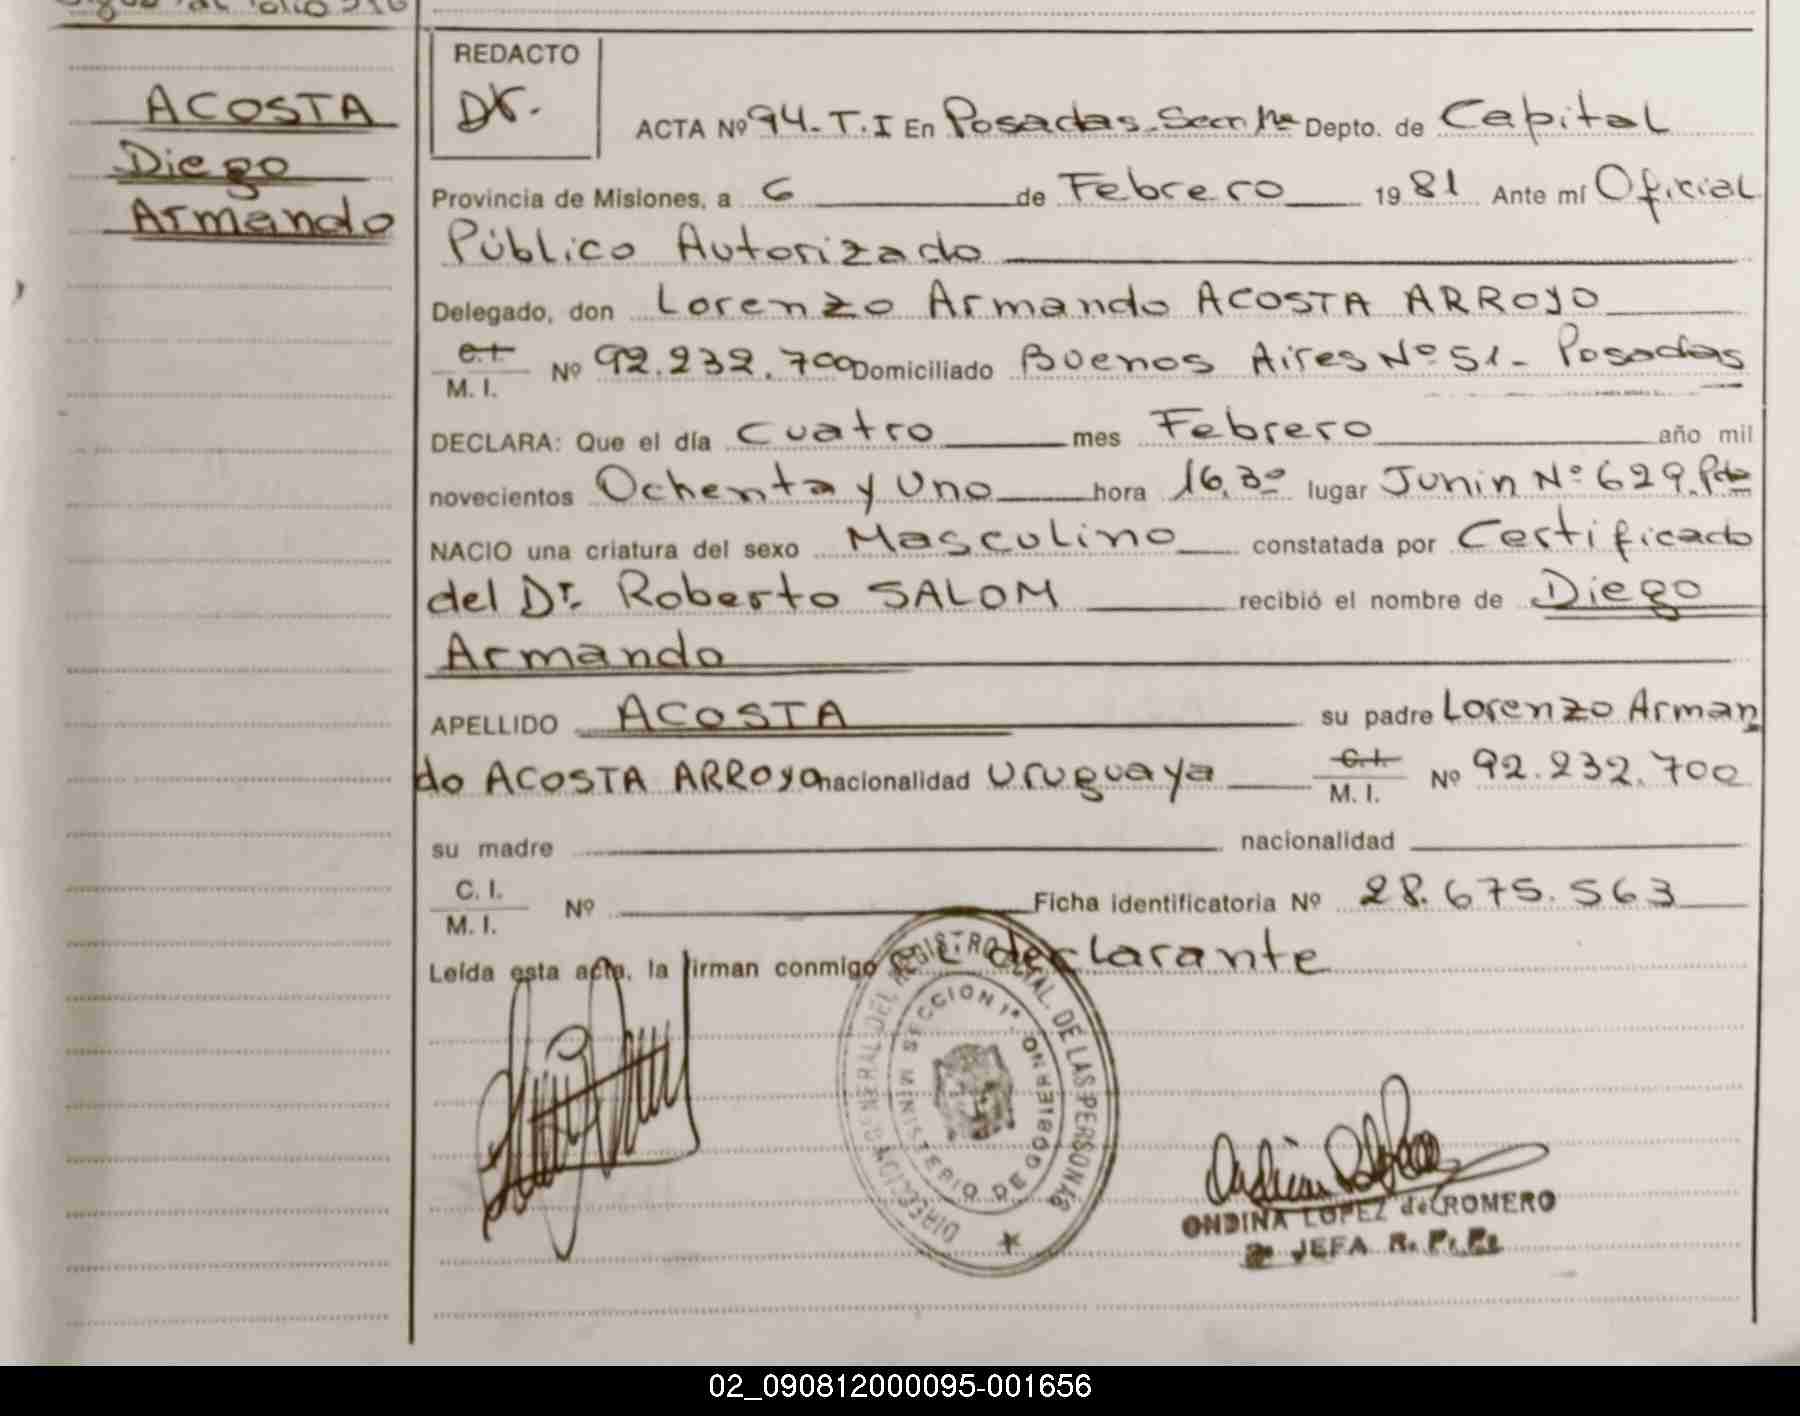 ACOSTA
Diego
Armando
REDACTO
Dr.
ACTA Nº 94-T.I En Posadas-Secc 1ª Depto. de Capital
Provincia de Misiones, a 6 de Febrero 1981 Ante mí Oficial
Público Autorizado
Delegado, don Lorenzo Armando ACOSTA ARROYO
C.I. M. I. Nº 92.232.700 Domiciliado Buenos Aires Nº 51- Posadas
DECLARA: Que el día Cuatro mes Febrero año mil
novecientos Ochenta y Uno hora 16,30 lugar Junin Nº 629.
NACIO una criatura del sexo Masculino constatada por Certificado
del Dr. Roberto SALOM recibió el nombre de Diego
Armando
APELLIDO ACOSTA su padre Lorenzo Arman
do ACOSTA ARROYO nacionalidad Uruguaya C.I. M. I. Nº 92.232.700
su madre nacionalidad
C. I. M. I. Nº Ficha identificatoria Nº 28.675.563
Leída esta acta, la firman conmigo el declarante
DIRECCION GENERAL DEL REGISTRO PCIAL. DE LAS PERSONAS
SECCION 1ª. MINISTERIO DE GOBIERNO
ONDINA LOPEZ de ROMERO
JEFA R. P. P.
02_090812000095-001656